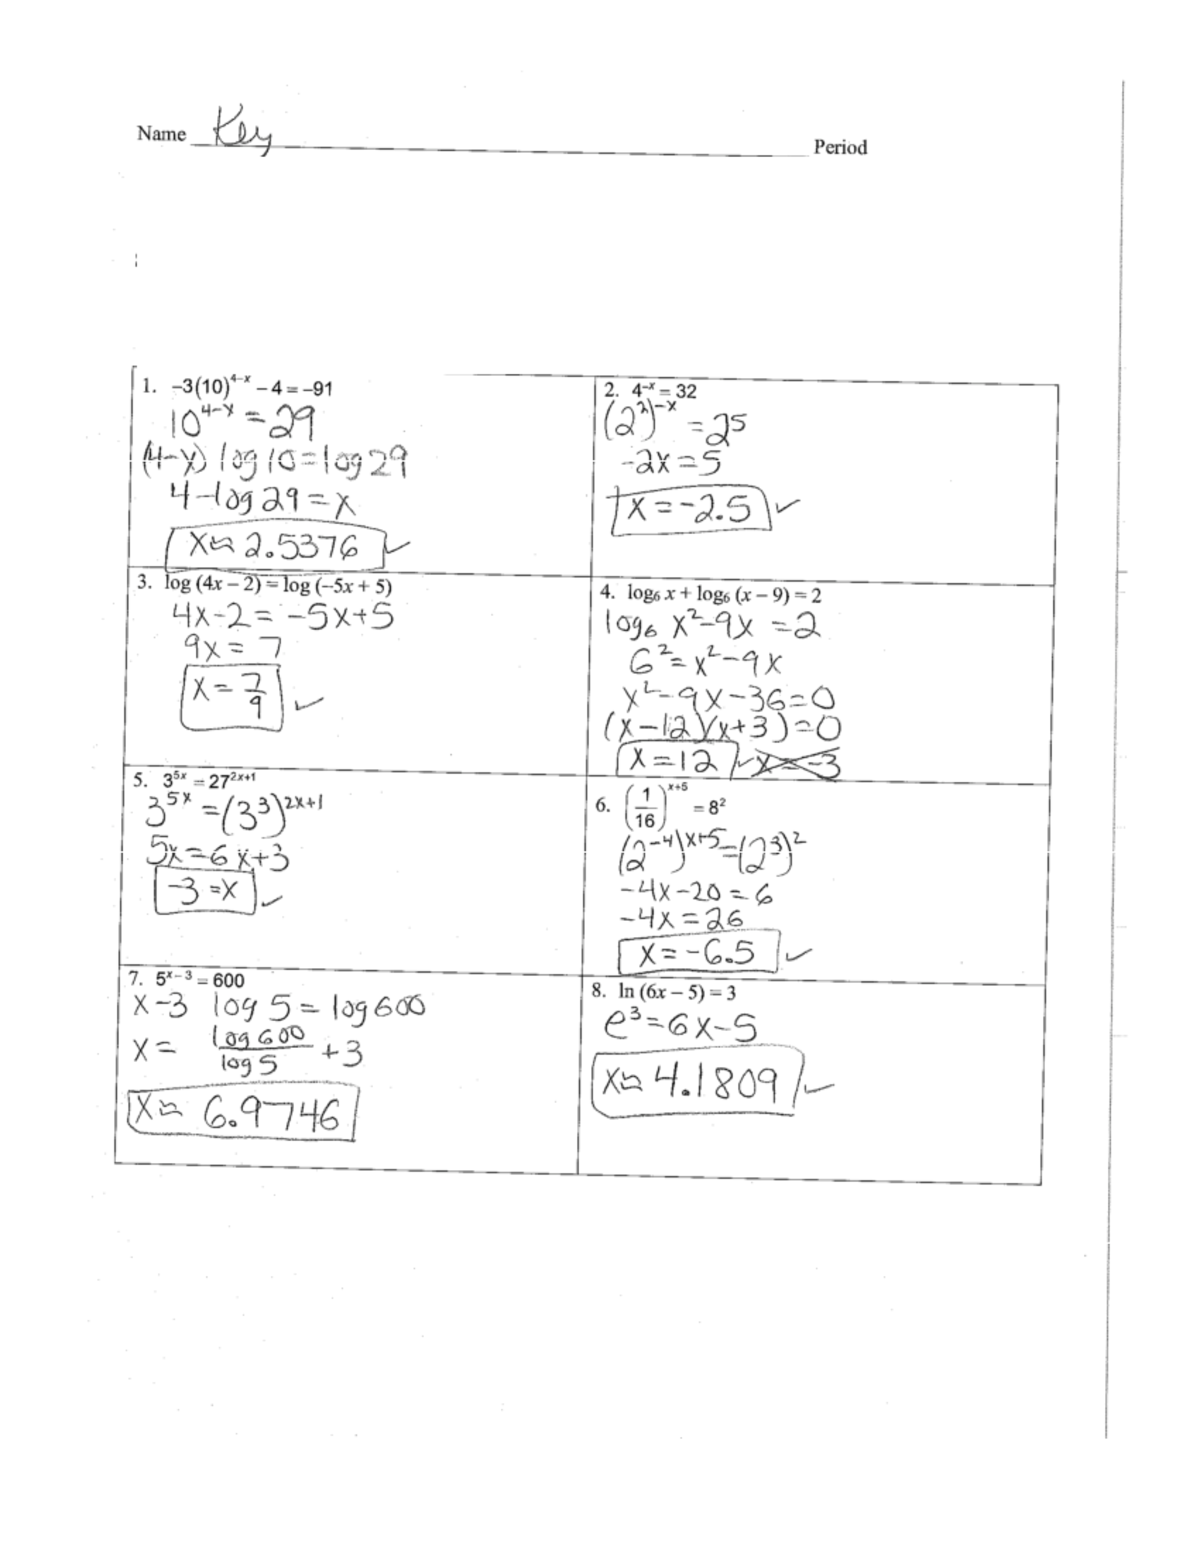 Name Key Period
1. –3(10)⁴⁻ˣ – 4 = –91
10⁴⁻ˣ = 29
(4-x) log 10 = log 29
4-log 29 = x
x≈ 2.5376 ✓
2. 4⁻ˣ = 32
(2²)⁻ˣ = 2⁵
-2x = 5
x = -2.5 ✓
3. log (4x – 2) = log (–5x + 5)
4x-2 = -5x+5
9x = 7
x = 7/9 ✓
4. log₆ x + log₆ (x – 9) = 2
log₆ x²-9x = 2
6² = x²-9x
x²-9x-36=0
(x-12)(x+3)=0
x=12 ✓ x=-3
5. 3⁵ˣ = 27²ˣ⁺¹
3⁵ˣ = (3³)²ˣ⁺¹
5x=6x+3
-3 =x ✓
6. (1/16)ˣ⁺⁵ = 8²
(2⁻⁴)ˣ⁺⁵=(2³)²
-4x-20 = 6
-4x = 26
x = -6.5 ✓
7. 5ˣ⁻³ = 600
x-3 log 5 = log 600
x = log 600/log 5 +3
x≈ 6.9746
8. ln (6x – 5) = 3
e³=6x-5
x≈ 4.1809 ✓